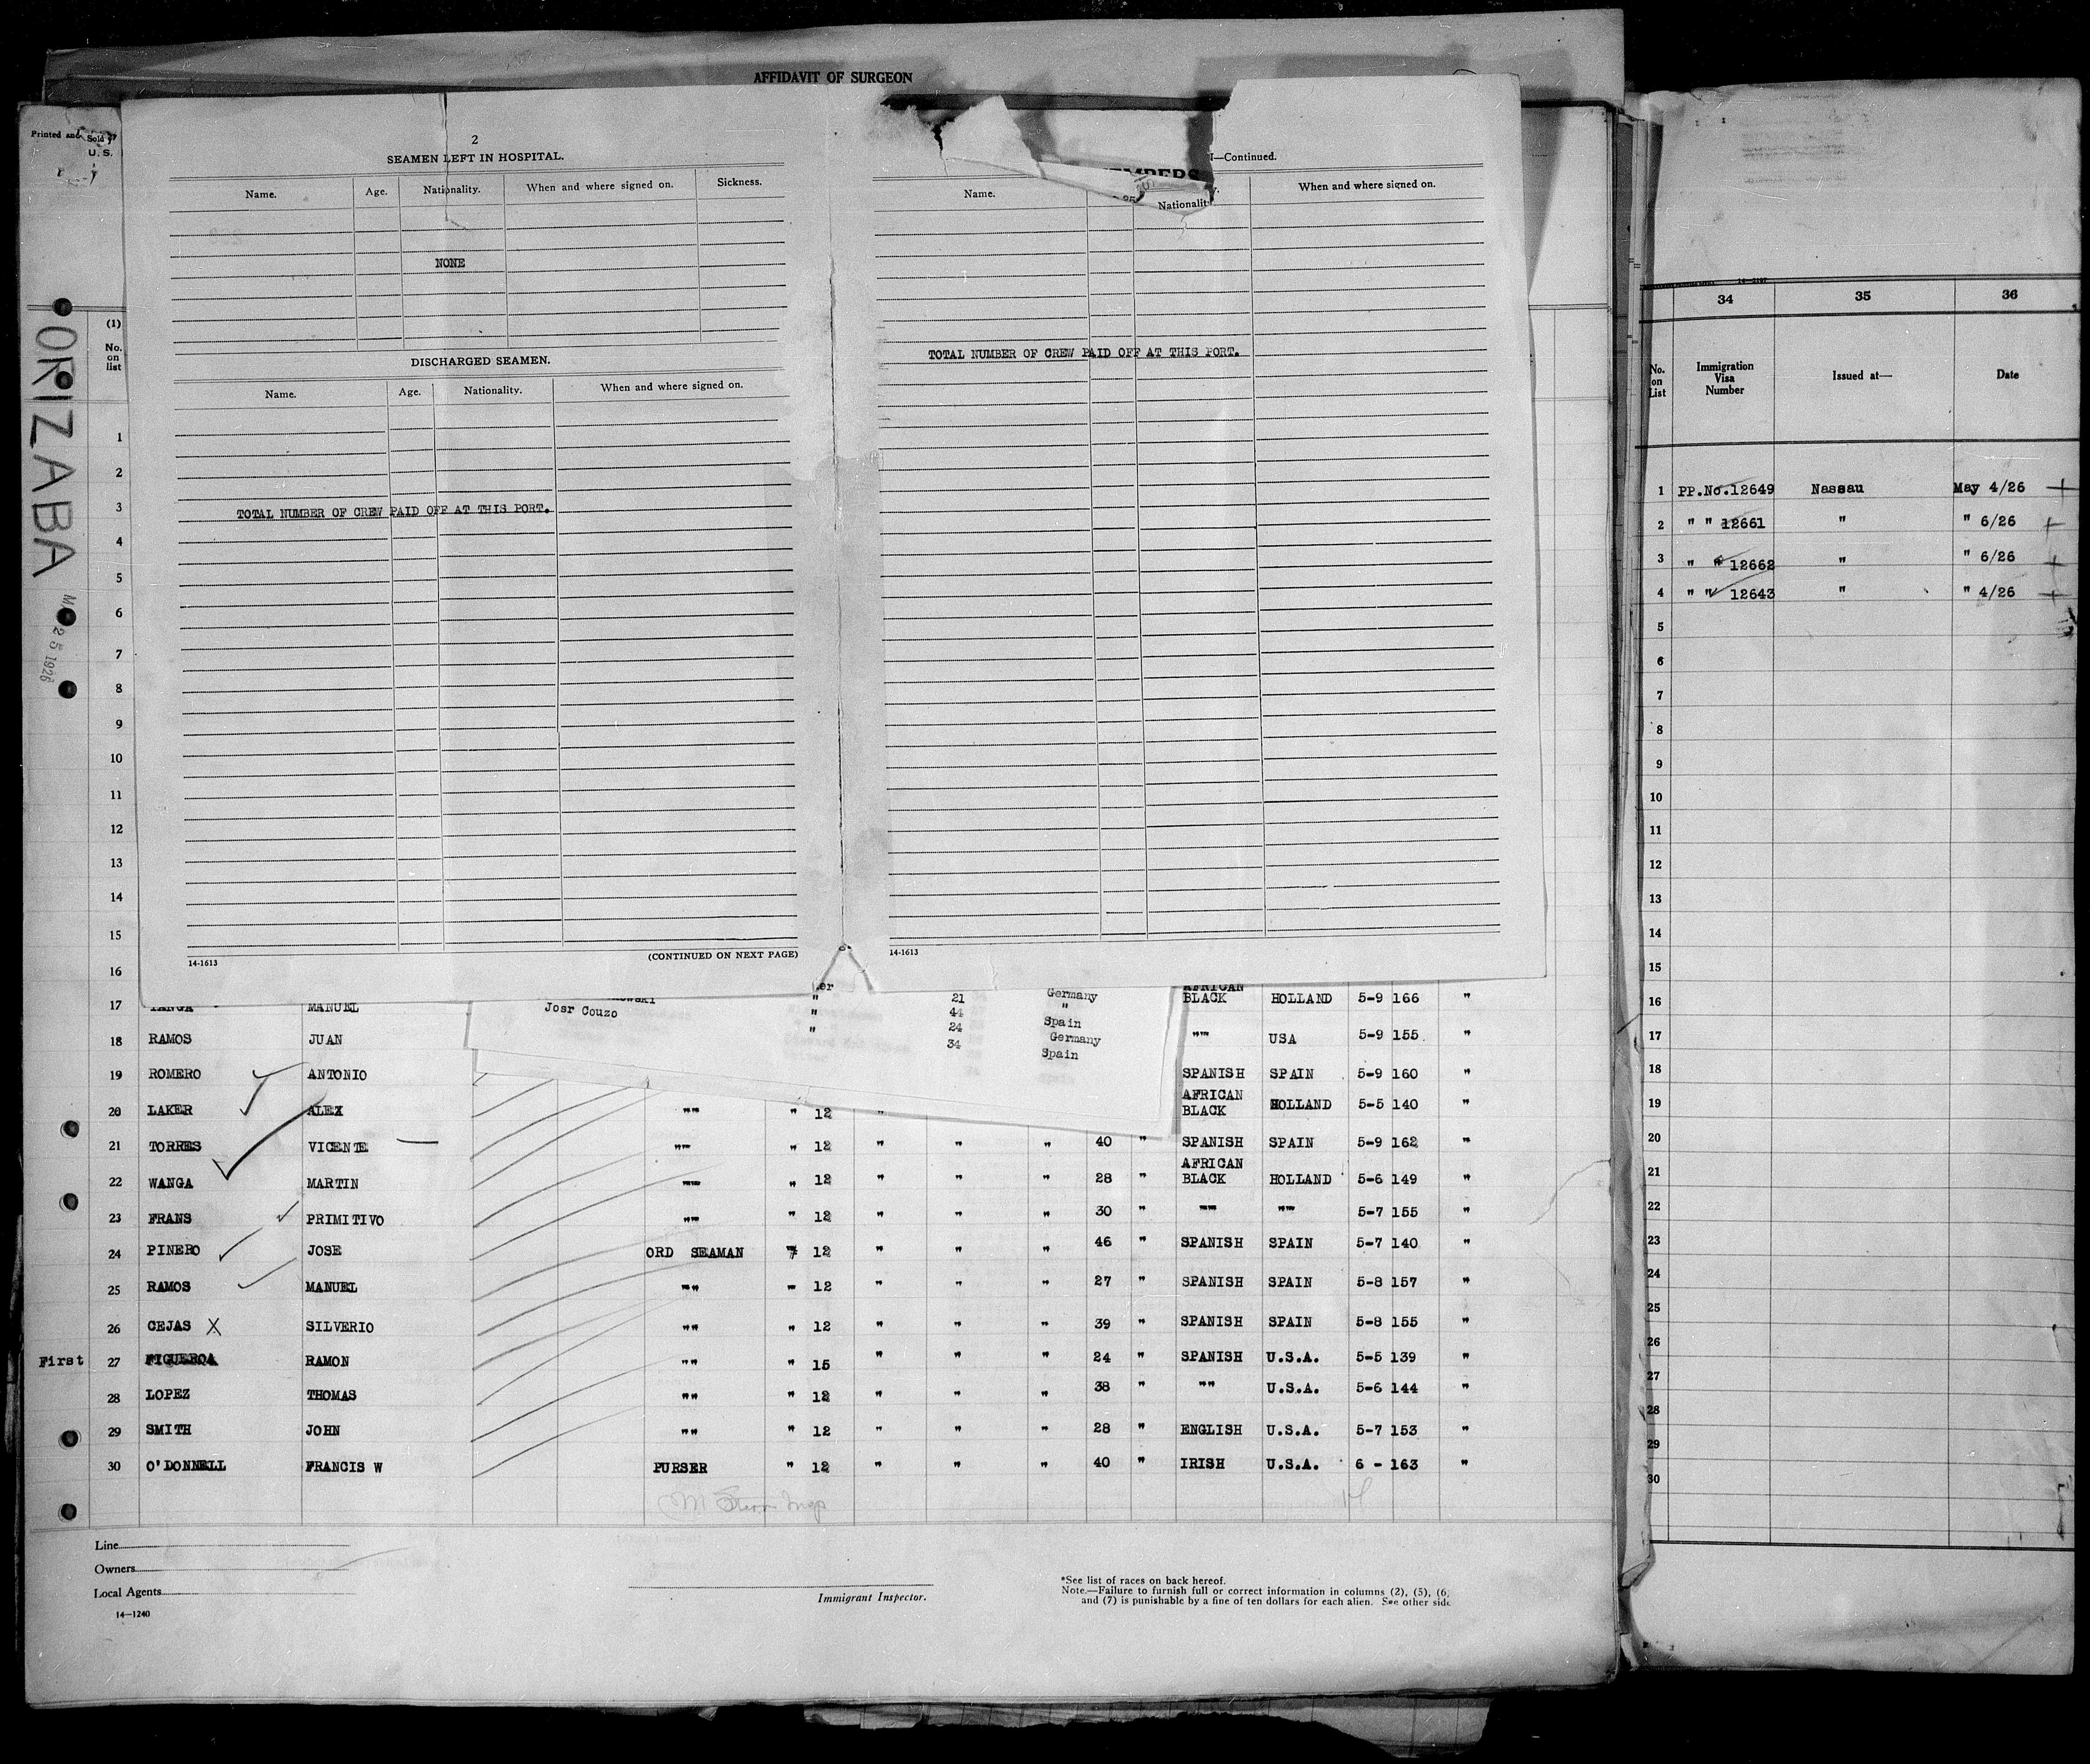 AFFIDAVIT OF SURGEON
Printed and Sold
U. S.
ORIZABA
25 1926
2
SEAMEN LEFT IN HOSPITAL.
Name. Age. Nationality. When and where signed on. Sickness.
NONE
DISCHARGED SEAMEN.
Name. Age. Nationality. When and where signed on.
TOTAL NUMBER OF CREW PAID OFF AT THIS PORT.
(CONTINUED ON NEXT PAGE)
14-1613
—Continued.
Name. Nationality When and where signed on.
TOTAL NUMBER OF CREW PAID OFF AT THIS PORT.
14-1613
(1)
No. on list
1
2
3
4
5
6
7
8
9
10
11
12
13
14
15
16
Josr Couzo
" 21 Germany
" 44 "
" 24 Spain
34 Germany
Spain
17 MANUEL AFRICAN BLACK HOLLAND 5-9 166 "
18 RAMOS JUAN "" USA 5-9 155 "
19 ROMERO ANTONIO SPANISH SPAIN 5-9 160 "
20 LAKER ALEX "" " 12 " AFRICAN BLACK HOLLAND 5-5 140 "
21 TORRES VICENTE "" " 12 " " " 40 " SPANISH SPAIN 5-9 162 "
22 WANGA MARTIN "" " 12 " " " 28 " AFRICAN BLACK HOLLAND 5-6 149 "
23 FRANS PRIMITIVO "" " 12 " " " 30 " "" "" 5-7 155 "
24 PINERO JOSE ORD SEAMAN 12 " " " 46 " SPANISH SPAIN 5-7 140 "
25 RAMOS MANUEL "" " 12 " " " 27 " SPANISH SPAIN 5-8 157 "
26 CEJAS X SILVERIO "" " 12 " " " 39 " SPANISH SPAIN 5-8 155 "
First 27 FIGUEROA RAMON "" " 15 " " " 24 " SPANISH U.S.A. 5-5 139 "
28 LOPEZ THOMAS "" " 12 " " " 38 " "" U.S.A. 5-6 144 "
29 SMITH JOHN "" " 12 " " " 28 " ENGLISH U.S.A. 5-7 153 "
30 O'DONNELL FRANCIS W PURSER " 12 " " " 40 " IRISH U.S.A. 6 - 163 "
Line
Owners
Local Agents
14—1240
Immigrant Inspector.
*See list of races on back hereof.
Note.—Failure to furnish full or correct information in columns (2), (5), (6,
and (7) is punishable by a fine of ten dollars for each alien. See other side
34 35 36
No. on List Immigration Visa Number Issued at— Date
1 PP.No.12649 Nassau May 4/26
2 " " 12661 " " 6/26
3 " " 12662 " " 6/26
4 " " 12643 " " 4/26
5
6
7
8
9
10
11
12
13
14
15
16
17
18
19
20
21
22
23
24
25
26
27
28
29
30